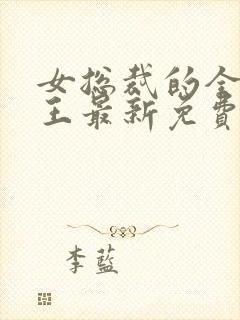 女总裁的全
王最新免费
李蓝